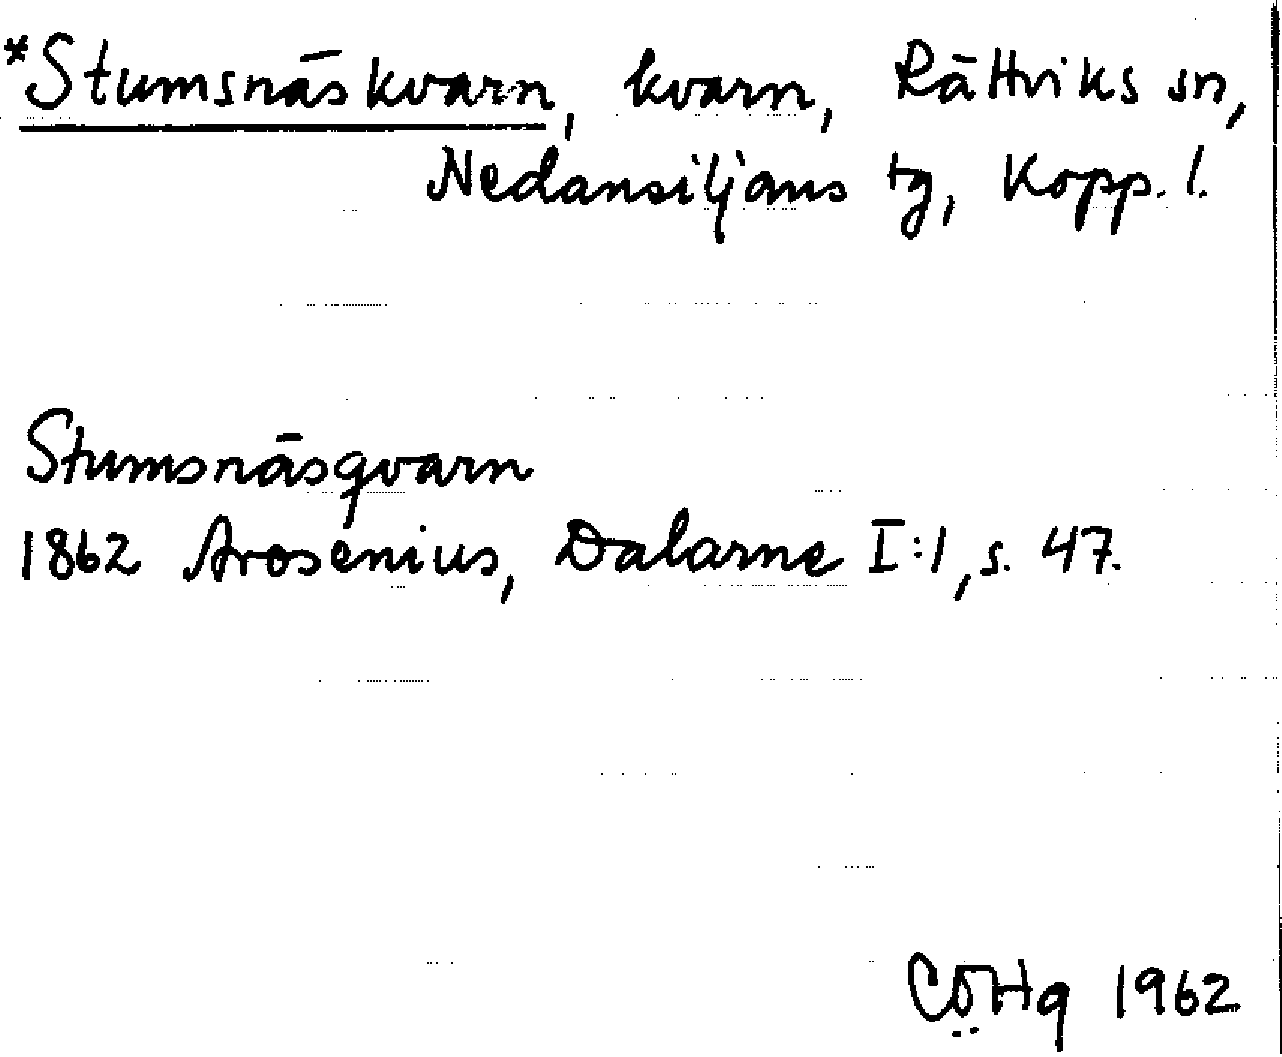 *Stumsnäs kvarn, kvarn, Rättviks sn,
Nedansiljans tg, Kopp. l.
Stumsnäsqvarn
1862 Arosenius, Dalarne I:1, s. 47.
1962